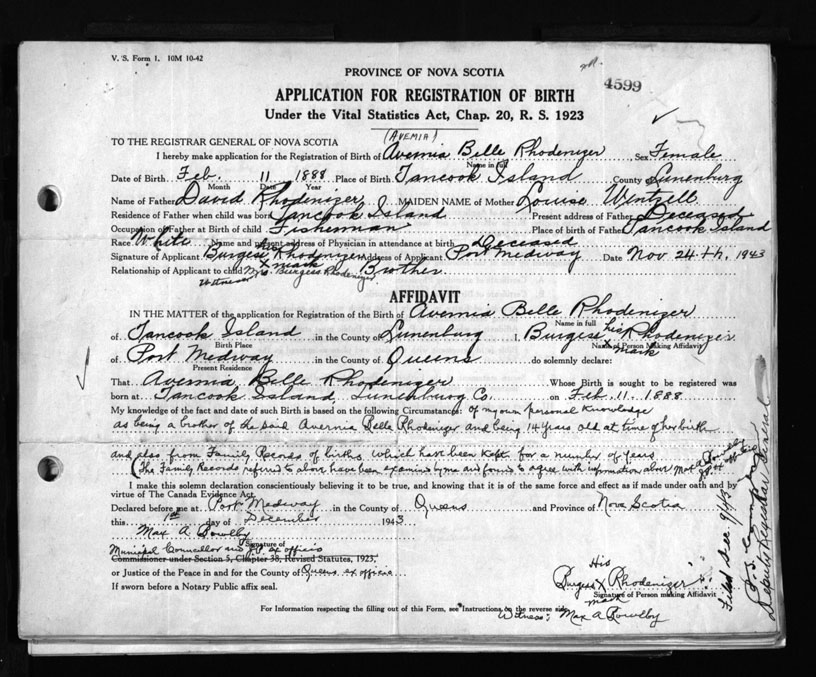 V. S. Form 1. 10M 10-42
4599
PROVINCE OF NOVA SCOTIA
APPLICATION FOR REGISTRATION OF BIRTH
Under the Vital Statistics Act, Chap. 20, R. S. 1923
(AVEMIA)
TO THE REGISTRAR GENERAL OF NOVA SCOTIA
I hereby make application for the Registration of Birth of Avernia Belle Rhodenizer Sex Female
Name in full
Date of Birth Feb. 11 1888 Place of Birth Tancook Island County Lunenburg
Month Date Year
Name of Father David Rhodenizer MAIDEN NAME of Mother Louise Wentzell
Residence of Father when child was born Tancook Island Present address of Father Deceased
Occupation of Father at Birth of child Fisherman Place of birth of Father Tancook Island
Race White Name and present address of Physician in attendance at birth Deceased
Signature of Applicant Burgess his x mark Rhodenizer Address of Applicant Port Medway Date Nov 24th, 1943
Relationship of Applicant to child Brother
Witness Mrs. Burgess Rhodenizer
AFFIDAVIT
IN THE MATTER of the application for Registration of the Birth of Avernia Belle Rhodenizer
Name in full
of Tancook Island in the County of Lunenburg I, Burgess his x mark Rhodenizer
Birth Place Name of Person Making Affidavit
of Port Medway in the County of Queens do solemnly declare:
Present Residence
That Avernia Belle Rhodenizer Whose Birth is sought to be registered was
born at Tancook Island, Lunenburg Co. on Feb. 11. 1888
My knowledge of the fact and date of such Birth is based on the following Circumstances: of my own personal knowledge
as being a brother of the said Avernia Belle Rhodenizer and being 14 years old at time of her birth
and also from Family Records of births, which have been kept for a number of years
(The Family Records referred to above have been examined by me and found to agree with information above Max A Bowlby
I make this solemn declaration conscientiously believing it to be true, and knowing that it is of the same force and effect as if made under oath and by
virtue of The Canada Evidence Act.
Declared before me at Port Medway in the County of Queens and Province of Nova Scotia
this 1st day of December 1943
Max A Bowlby
Signature of
Municipal Councillor and J.P. ex officio
Commissioner under Section 5, Chapter 38, Revised Statutes, 1923,
or Justice of the Peace in and for the County of Queens ex officio
If sworn before a Notary Public affix seal.
His
Burgess X Rhodenizer
mark
Signature of Person making Affidavit
For Information respecting the filling out of this Form, see Instructions on the reverse side.
Witness: Max A Bowlby
Filed Dec. 9/43
Deputy Registrar General